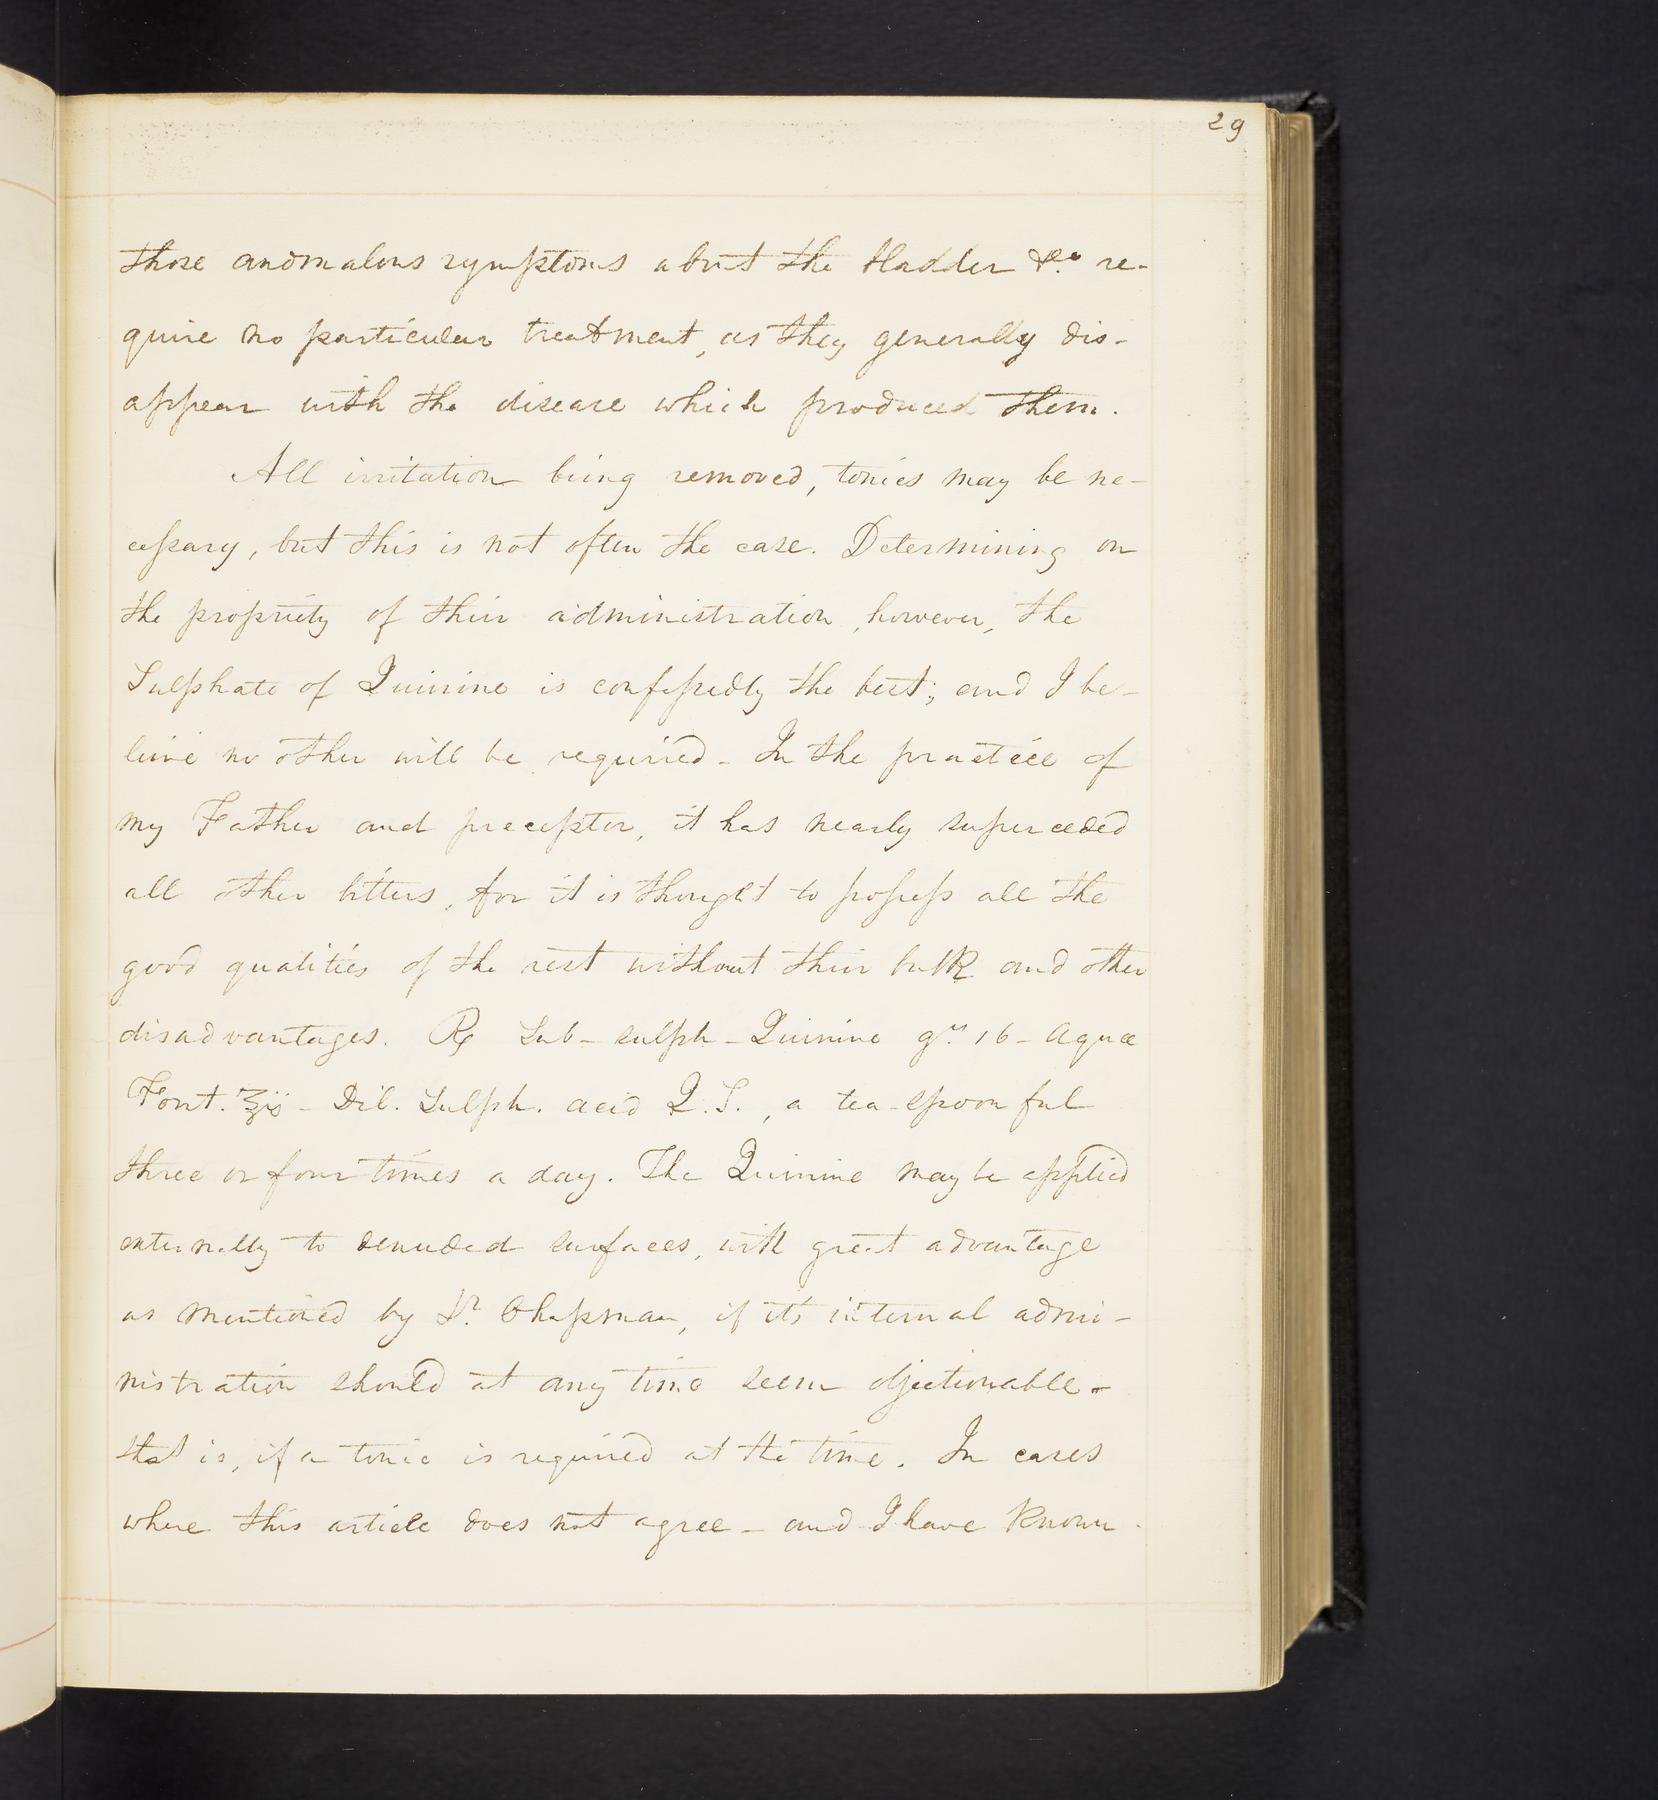 29
those anomalous symptoms about the bladder &c. re-
quire no particular treatment, as they generally dis-
appear with the disease which produced them.
All irritation being removed, tonics may be ne-
cessary, but this is not often the case. Determining on
the propriety of their administration, however, the
Sulphate of Quinine is confessedly the best; and I be-
lieve no other will be required - In the practice of
my Father and preceptor, it has nearly superceded
all other bitters, for it is thought to possess all the
good qualities of the rest without their bulk and other
disadvantages. ℞ Sub-sulph-Quinine grs. 16 - Aquæ
Font. ℥ii - Dil. Sulph. acid Q.S., a tea-spoonful
three or four times a day. The Quinine may be applied
externally to denuded surfaces, with great advantage
as mentioned by Dr. Chapman, if it's internal admi-
nistration should at any time seem objectionable -
that is, if a tonic is required at the time. In cases
where this article does not agree - and I have known